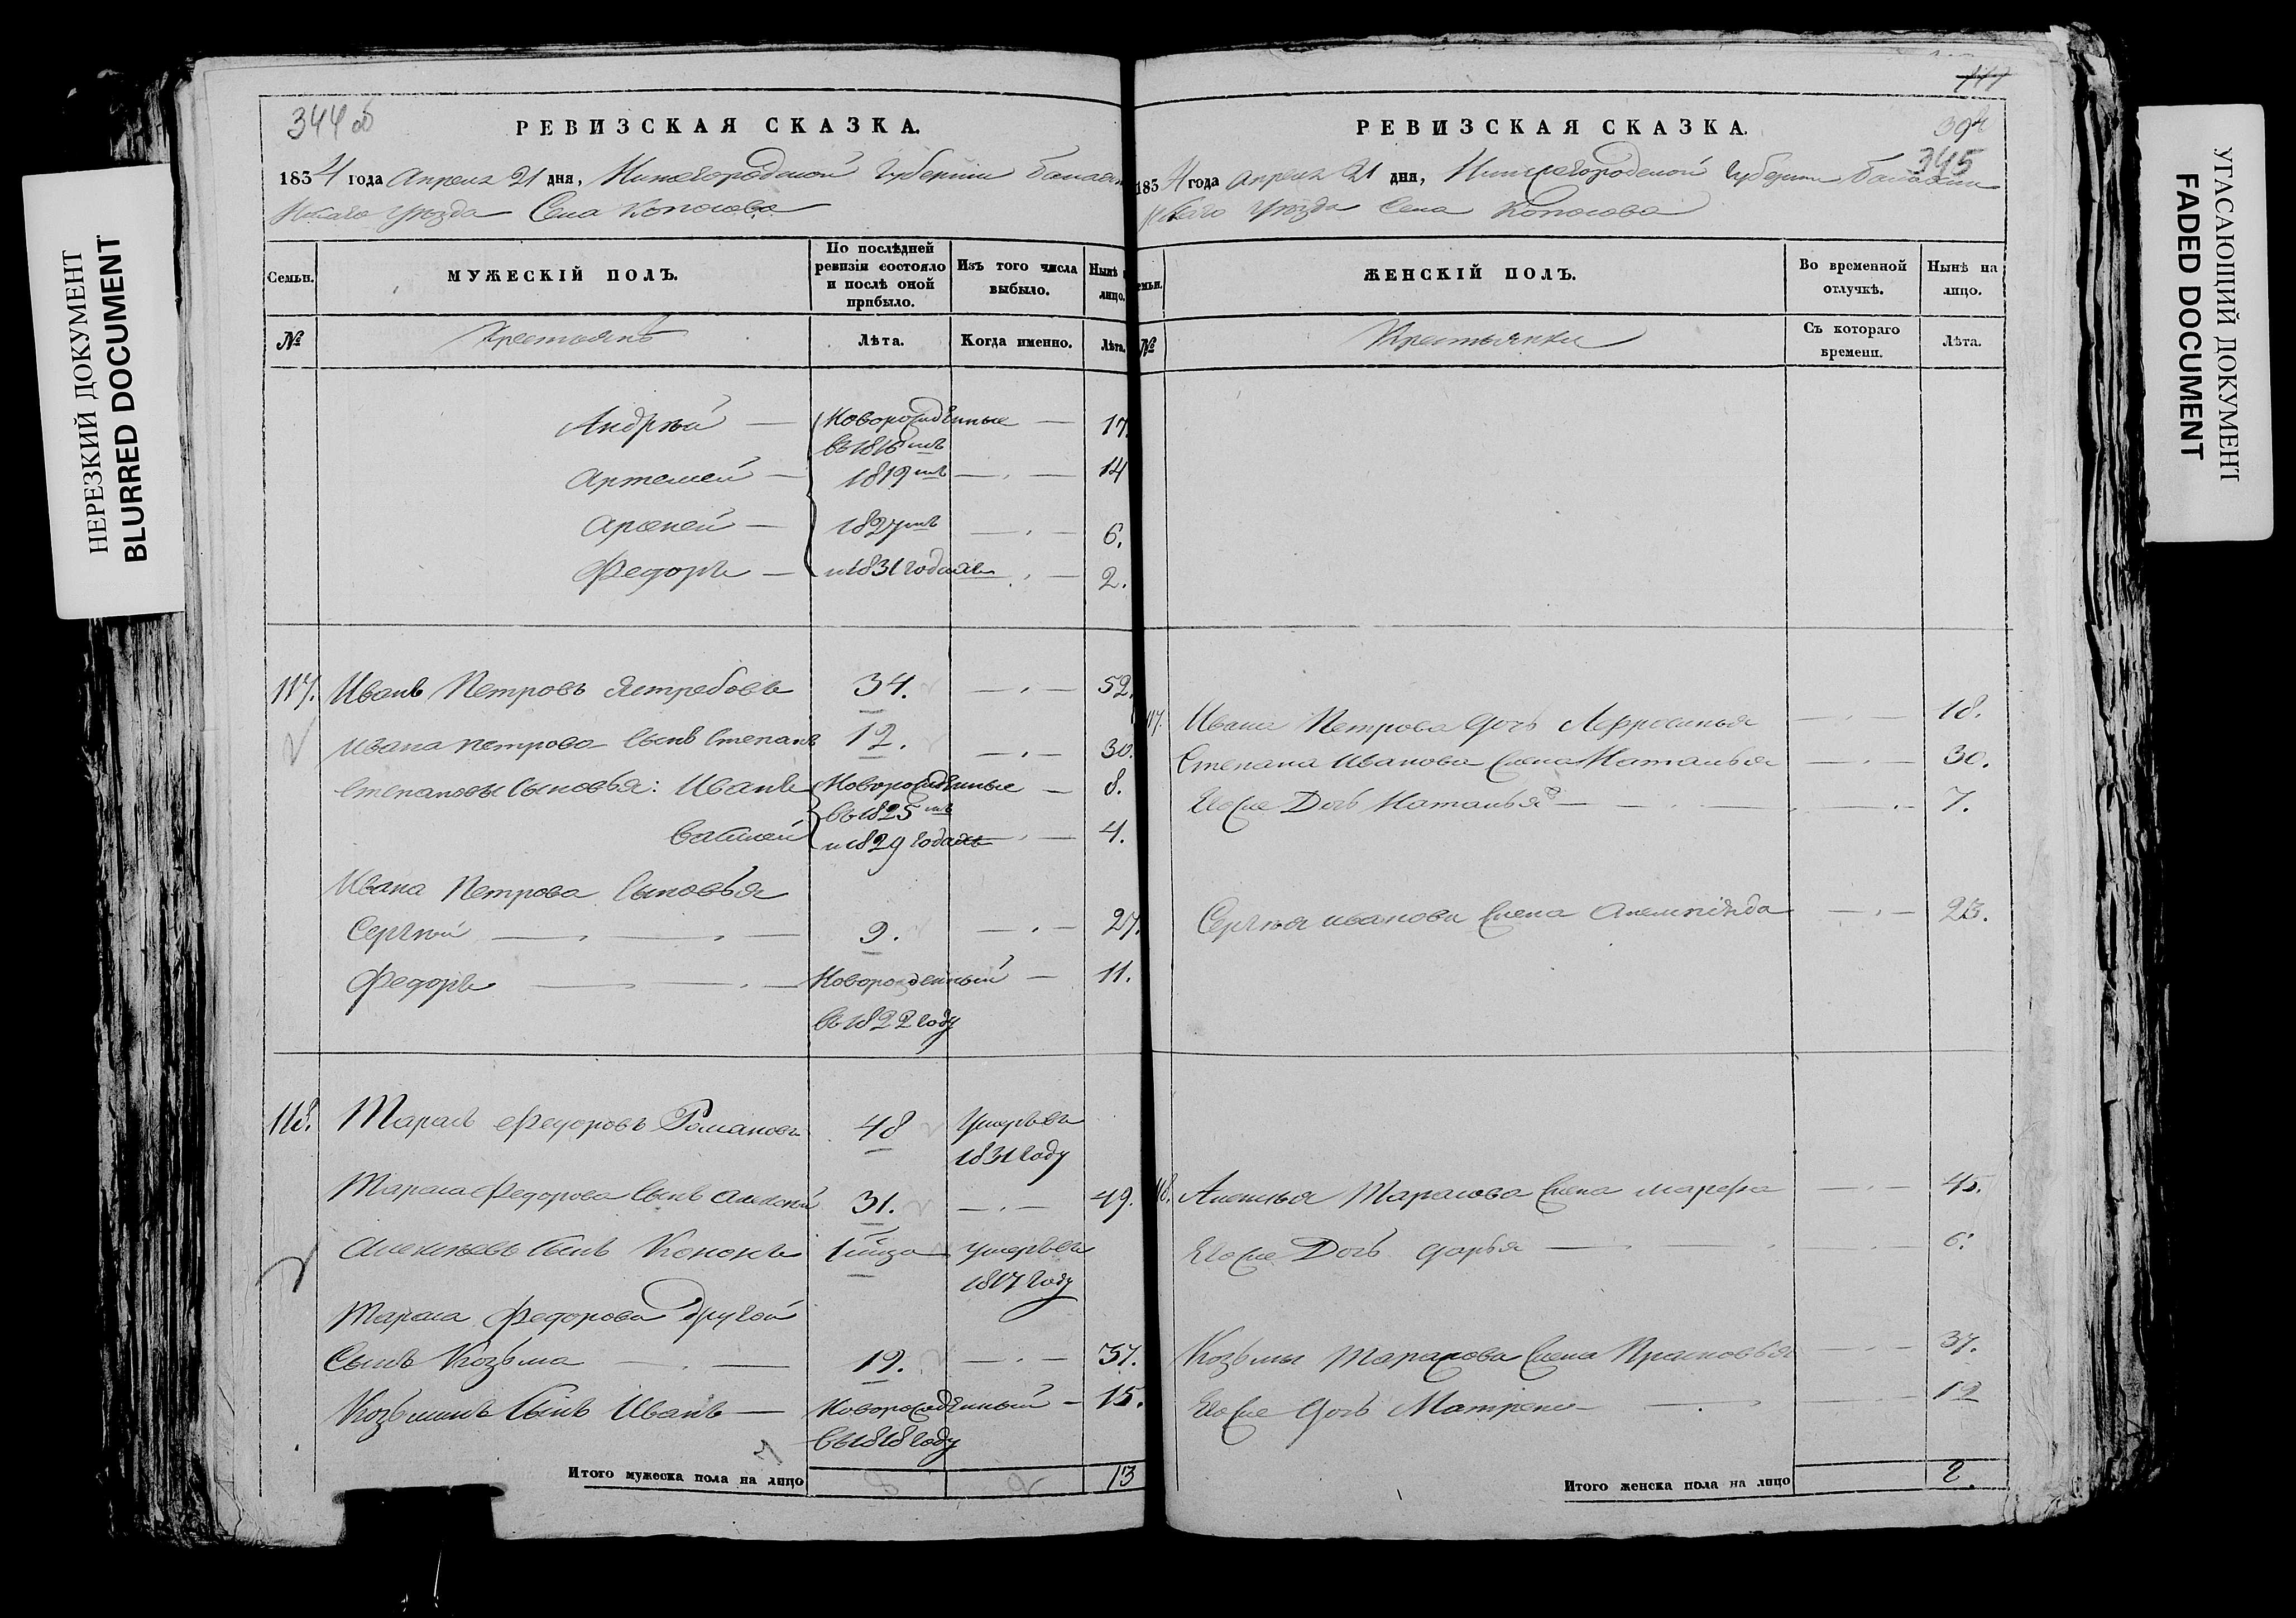 НЕРЕЗКИЙ ДОКУМЕНТ
BLURRED DOCUMENT
344 об
РЕВИЗСКАЯ СКАЗКА.
1834 года Апреля 21 дня, Нижегородской Губернии Балахн
скаго уезда Села Копосова
Семьи.
МУЖЕСКІЙ ПОЛЪ.
По послѣдней ревизіи состояло и послѣ оной прибыло.
Изъ того числа выбыло.
Нынѣ лицо.
№
Крестьянъ
Лѣта.
Когда именно.
Лѣта.
Андрей — Новорожденные — 17.
въ 1816мъ
Артемей — 1819мъ — 14
Арсеней — 1827мъ — 6.
Федоръ — и 1831 годахъ — 2.
117. Иванъ Петровъ Ястребовъ 34. — 52.
Ивана Петрова сынъ Степанъ 12. — 30.
Степановы сыновья: Иванъ Новорожденные — 8.
въ 1825мъ
Василей и 1829 годахъ — 4.
Ивана Петрова сыновья
Сергѣй — 9. — 27.
Федоръ — Новорожденный — 11.
въ 1822 году
118. Тарасъ Федоровъ Романовъ 48 Умеръ въ
1831 году
Тараса Федорова сынъ Алексѣй 31. — 49.
Алексѣевъ сынъ Кононъ умеръ въ
1817 году
Тараса Федорова другой
Сынъ Козьма — 19. — 37.
Козьминъ сынъ Иванъ — Новорожденный — 15.
въ 1818 году
Итого мужеска пола на лицо 13
117
394
345
РЕВИЗСКАЯ СКАЗКА.
1834 года Апреля 21 дня, Нижегородской Губернии Балахнин
скаго уезда Села Копосова
ЖЕНСКІЙ ПОЛЪ.
Во временной отлучкѣ.
Нынѣ на лицо.
№
Крестьянки
Съ котораго времени.
Лѣта.
117. Ивана Петрова дочь Афросинья — 18.
Степана Иванова жена Наталья — 30.
Его же Дочь Наталья — 7.
Сергѣя Иванова жена — 23.
118. Алексѣя Тарасова жена Марфа — 45.
Его же Дочь Дарья — 6.
Козьмы Тарасова жена Прасковья — 37.
Его же дочь Матрена — 12
Итого женска пола на лицо
УГАСАЮЩИЙ ДОКУМЕНТ
FADED DOCUMENT